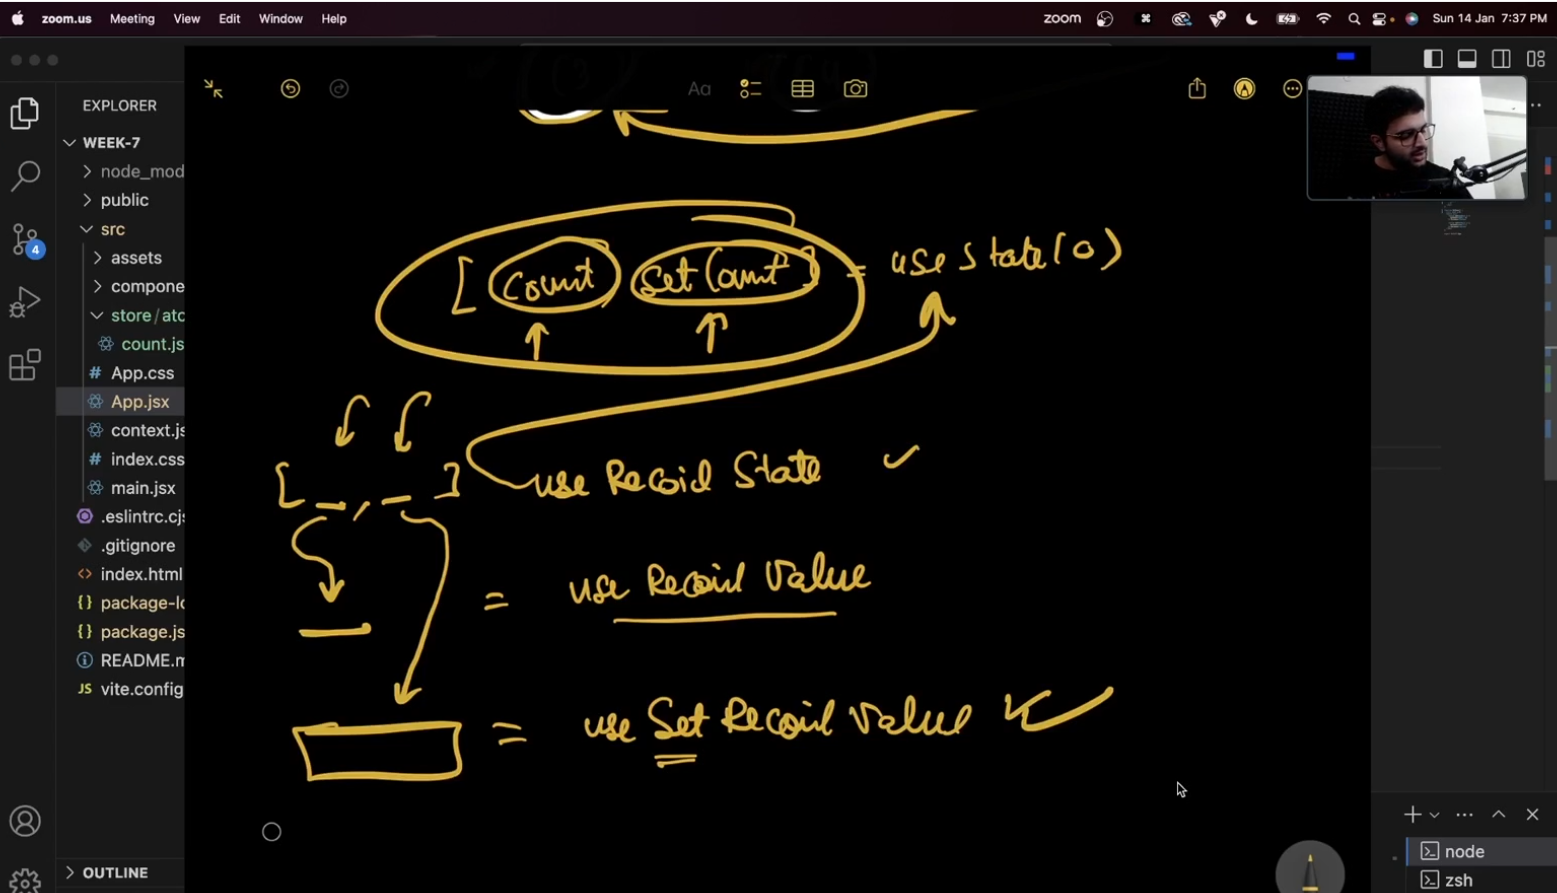 zoom.us Meeting View Edit Window Help
zoom Sun 14 Jan 7:37 PM
EXPLORER
WEEK-7
node_mod
public
src
assets
compone
store/atc
count.js
App.css
App.jsx
context.js
index.css
main.jsx
.eslintrc.cjs
.gitignore
index.html
package-lo
package.js
README.m
vite.config
OUTLINE
4
Aa
[ count setCount ] = useState(0)
[ _ , _ ] use Recoil State
= use Recoil Value
= use Set Recoil Value
node
zsh